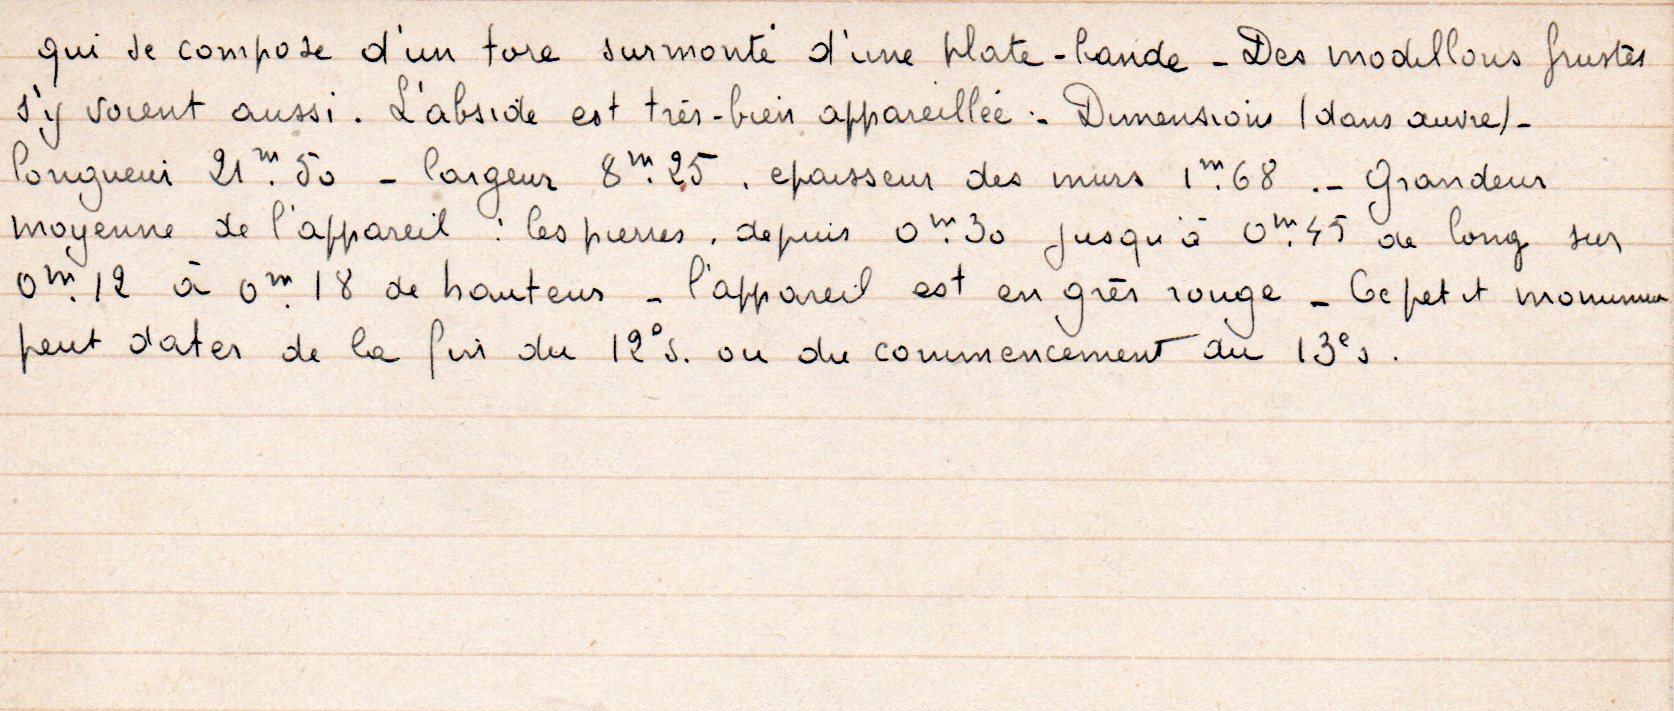 qui se compose d'un tore surmonté d'une plate-bande - Des modillons frustes
s'y voient aussi. L'abside est très-bien appareillée :- Dimensions (dans œuvre) -
longueur 21m.50 - largeur 8m.25. epaisseur des murs 1m.68 .- Grandeur
moyenne de l'appareil : les pierres. depuis 0m.30 jusqu'à 0m.45 de long sur
0m.12 à 0m.18 de hauteur - l'appareil est en grès rouge - Ce petit monument
peut dater de la fin du 12e s. ou du commencement du 13e s.